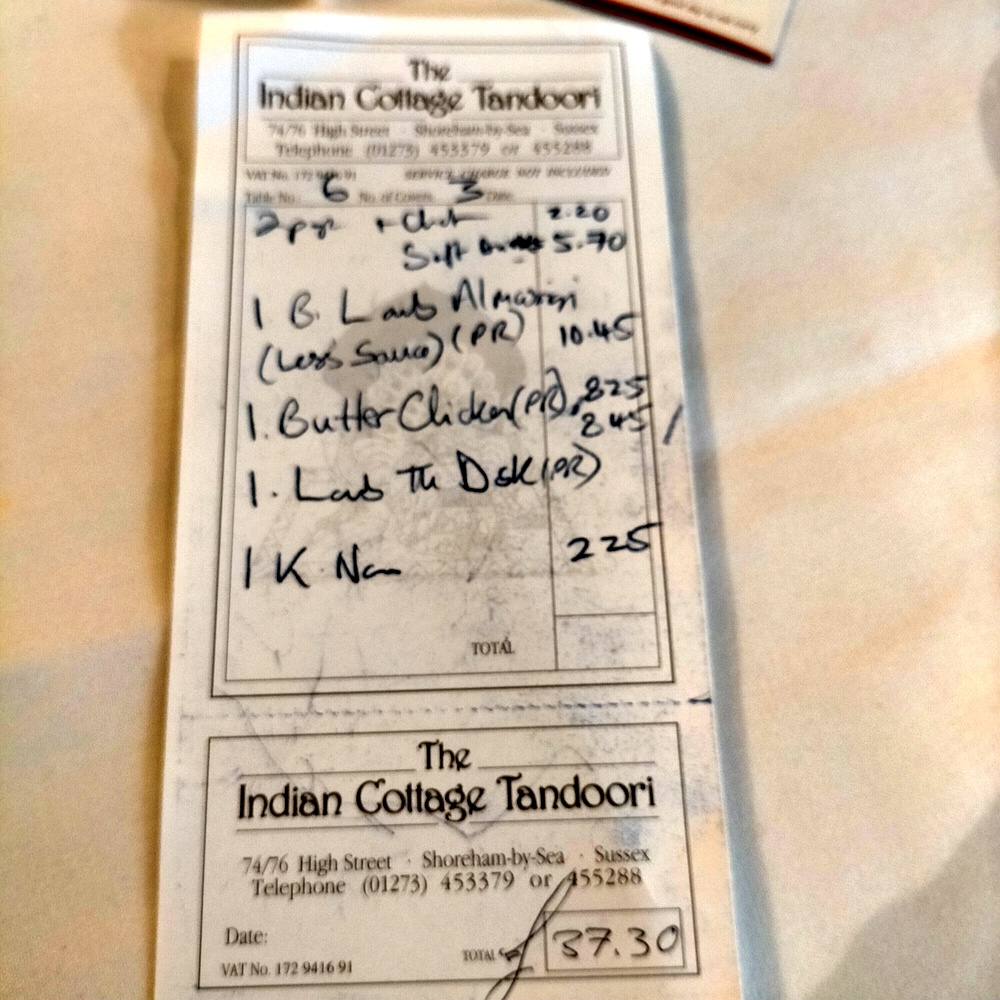 The
Indian Cottage Tandoori
74/76 High Street · Shoreham-by-Sea · Sussex
Telephone (01273) 453379 or 455288
VAT No. 172 9416 91 SERVICE CHARGE NOT INCLUDED
Table No. 6 No. of Covers 3 Date
2 + 2.20
Soft 5.70
1 B. Lamb
(Less Sauce) (PR) 10.45
1. Butter Chicken (PR) 825
845 /
1. Lamb (PR)
1 K. Nan 225
TOTAL
The
Indian Cottage Tandoori
74/76 High Street · Shoreham-by-Sea · Sussex
Telephone (01273) 453379 or 455288
Date:
TOTAL 37.30
VAT No. 172 9416 91